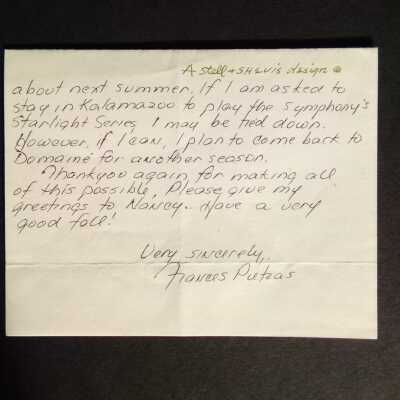 A stell & SHEVIS design
about next summer. If I am asked to
stay in Kalamazoo to play the symphony's
Starlight Series, I may be tied down.
However, if I can, I plan to come back to
Domaine for another season.
Thankyou again for making all
of this possible. Please give my
greetings to Nancy. Have a very
good fall!
Very sincerely,
Frances